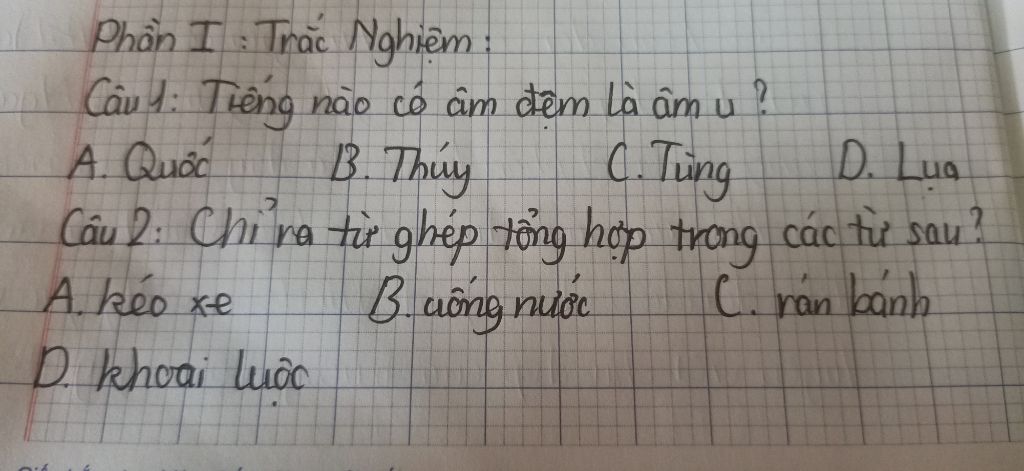 Phần I : Trắc Nghiệm :
Câu 1: Tiếng nào có âm đệm là âm u ?
A. Quốc B. Thúy C. Tùng D. Lụa
Câu 2: Chỉ ra từ ghép tổng hợp trong các từ sau ?
A. kéo xe B. uống nước C. rán bánh
D. khoai luộc